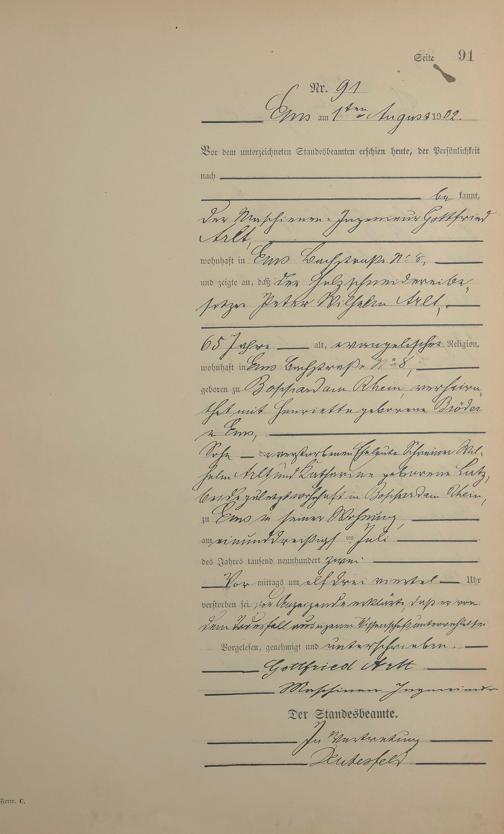 Seite 91
Nr. 91
Ems am 1ten August 1902.
Vor dem unterzeichneten Standesbeamten erschien heute, der Persönlichkeit
nach
be kannt,
der Maschinen-Ingenieur Gottfried
Arlt,
wohnhaft in Ems Bachstraße No 8,
und zeigte an, daß der Holzschneidereibe-
sitzer Peter Wilhelm Arlt,
65 Jahre alt, evangelischer Religion,
wohnhaft in Ems Bachstraße No 8,
geboren zu am Rhein, verheira-
thet mit Henriette geborene Bröder
Ems,
Sohn der verstorbenen Eheleute Schreiner Wil-
helm Arlt und Katharine geborene
beide zuletzt wohnhaft in am Rhein,
zu Ems in seiner Wohnung,
am einunddreißigsten Juli
des Jahres tausend neunhundert zwei
Vor mittags um elf drei viertel Uhr
verstorben sei. Der Anzeigende erklärte, daß er von
dem Todesfall aus eigener Wissenschaft unterrichtet sei
Vorgelesen, genehmigt und unterschrieben.
Gottfried Arlt
Maschinen Ingenieur
Der Standesbeamte.
In Vertretung
Form. C.